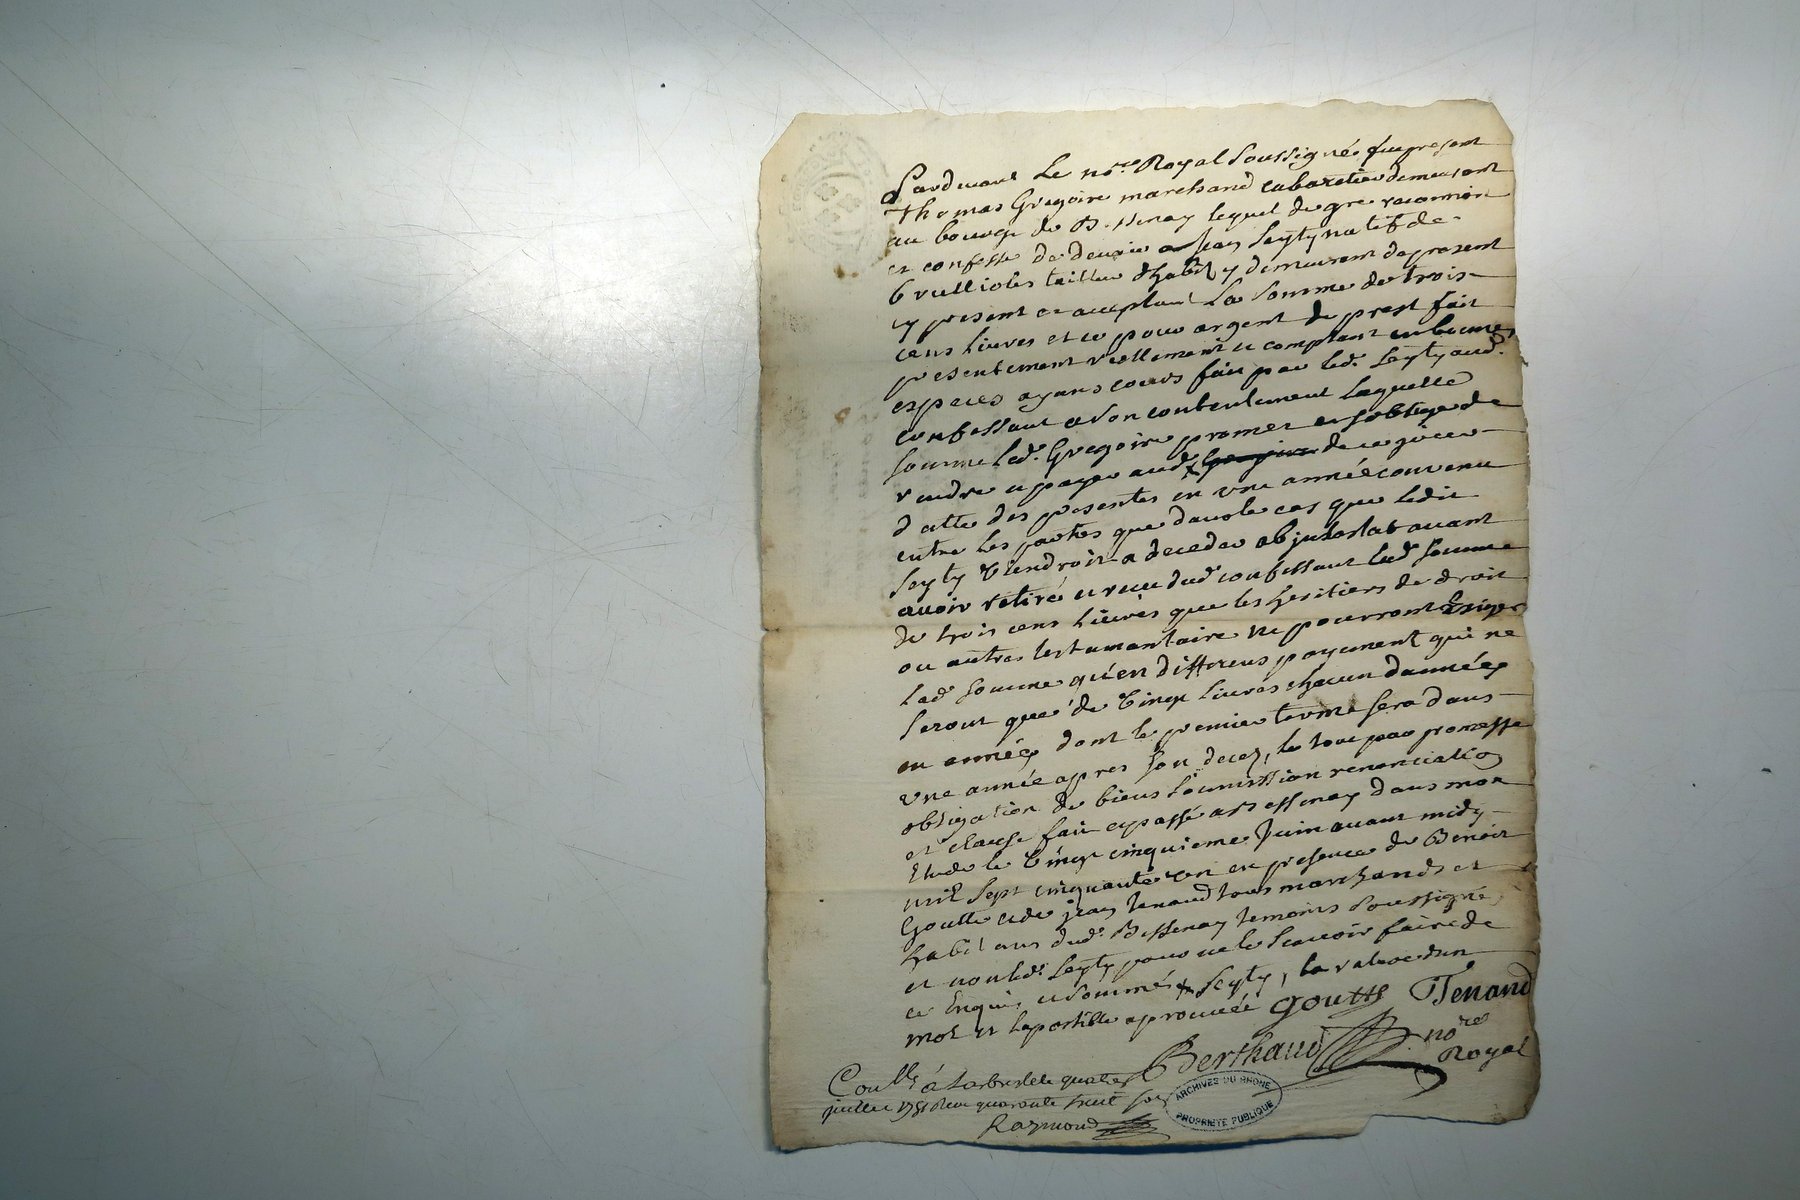 Pardevant Le no.re Royal Soussigné, fut present
Thomas Gregoire marchand cabaretier demeurant
au bourg de Bessenay lequel de gre reconnoit
et confesse de devoir a Jean Seyty natif de
Brullioles tailleur d'habit y demeurant de present
cy present et acceptant La Somme de trois
cens Livres et ce pour argent de prest fait
presentement reellement et comptant en bonnes
especes ayans cours fait par led. Seyty aud.
confessant a Son contentement Laquelle
Somme led. Gregoire promet et s'oblige de
rendre et payer aud. x Gregoire de ce jour
datte des presentes en une année convenu
entre Les parties que dans le cas que ledit
Seyty Viendroit a deceder abjntestat avant
avoir retiré et receu dud. confessant lad. Somme
de trois cens Livres que les heritiers de droit
ou autres testamantaire ne pourront Exiger
lad. Somme qu'en differens payement qui ne
Seront que de Vingt Livres chacun d'années
en années dont le premier terme sera dans
une année apres Son decez, le tout par promesse
obligation de biens Soumission renonciation
et clause fait et passé a Bessenay dans mon
Etude le Vingt cinquieme Juin avant midy
mil Sept cinquante un en presence de Benoit
Goutte et de jean Tenand tous marchands et
habitans dud. Bessenay temoins Soussignés
et non led. Seyty pour ne le Scavoir faire de
ce Enquis et Sommé x Seyty, la rature d'un
mot et l'apostille aprouvée Goutte Tenand
Berthaud no.re
Royal
Coullé à Larbresle le quatre
juillet 1751 Reçu quarante huit sols
Raymond
ARCHIVES DU RHONE
PROPRIÉTÉ PUBLIQUE